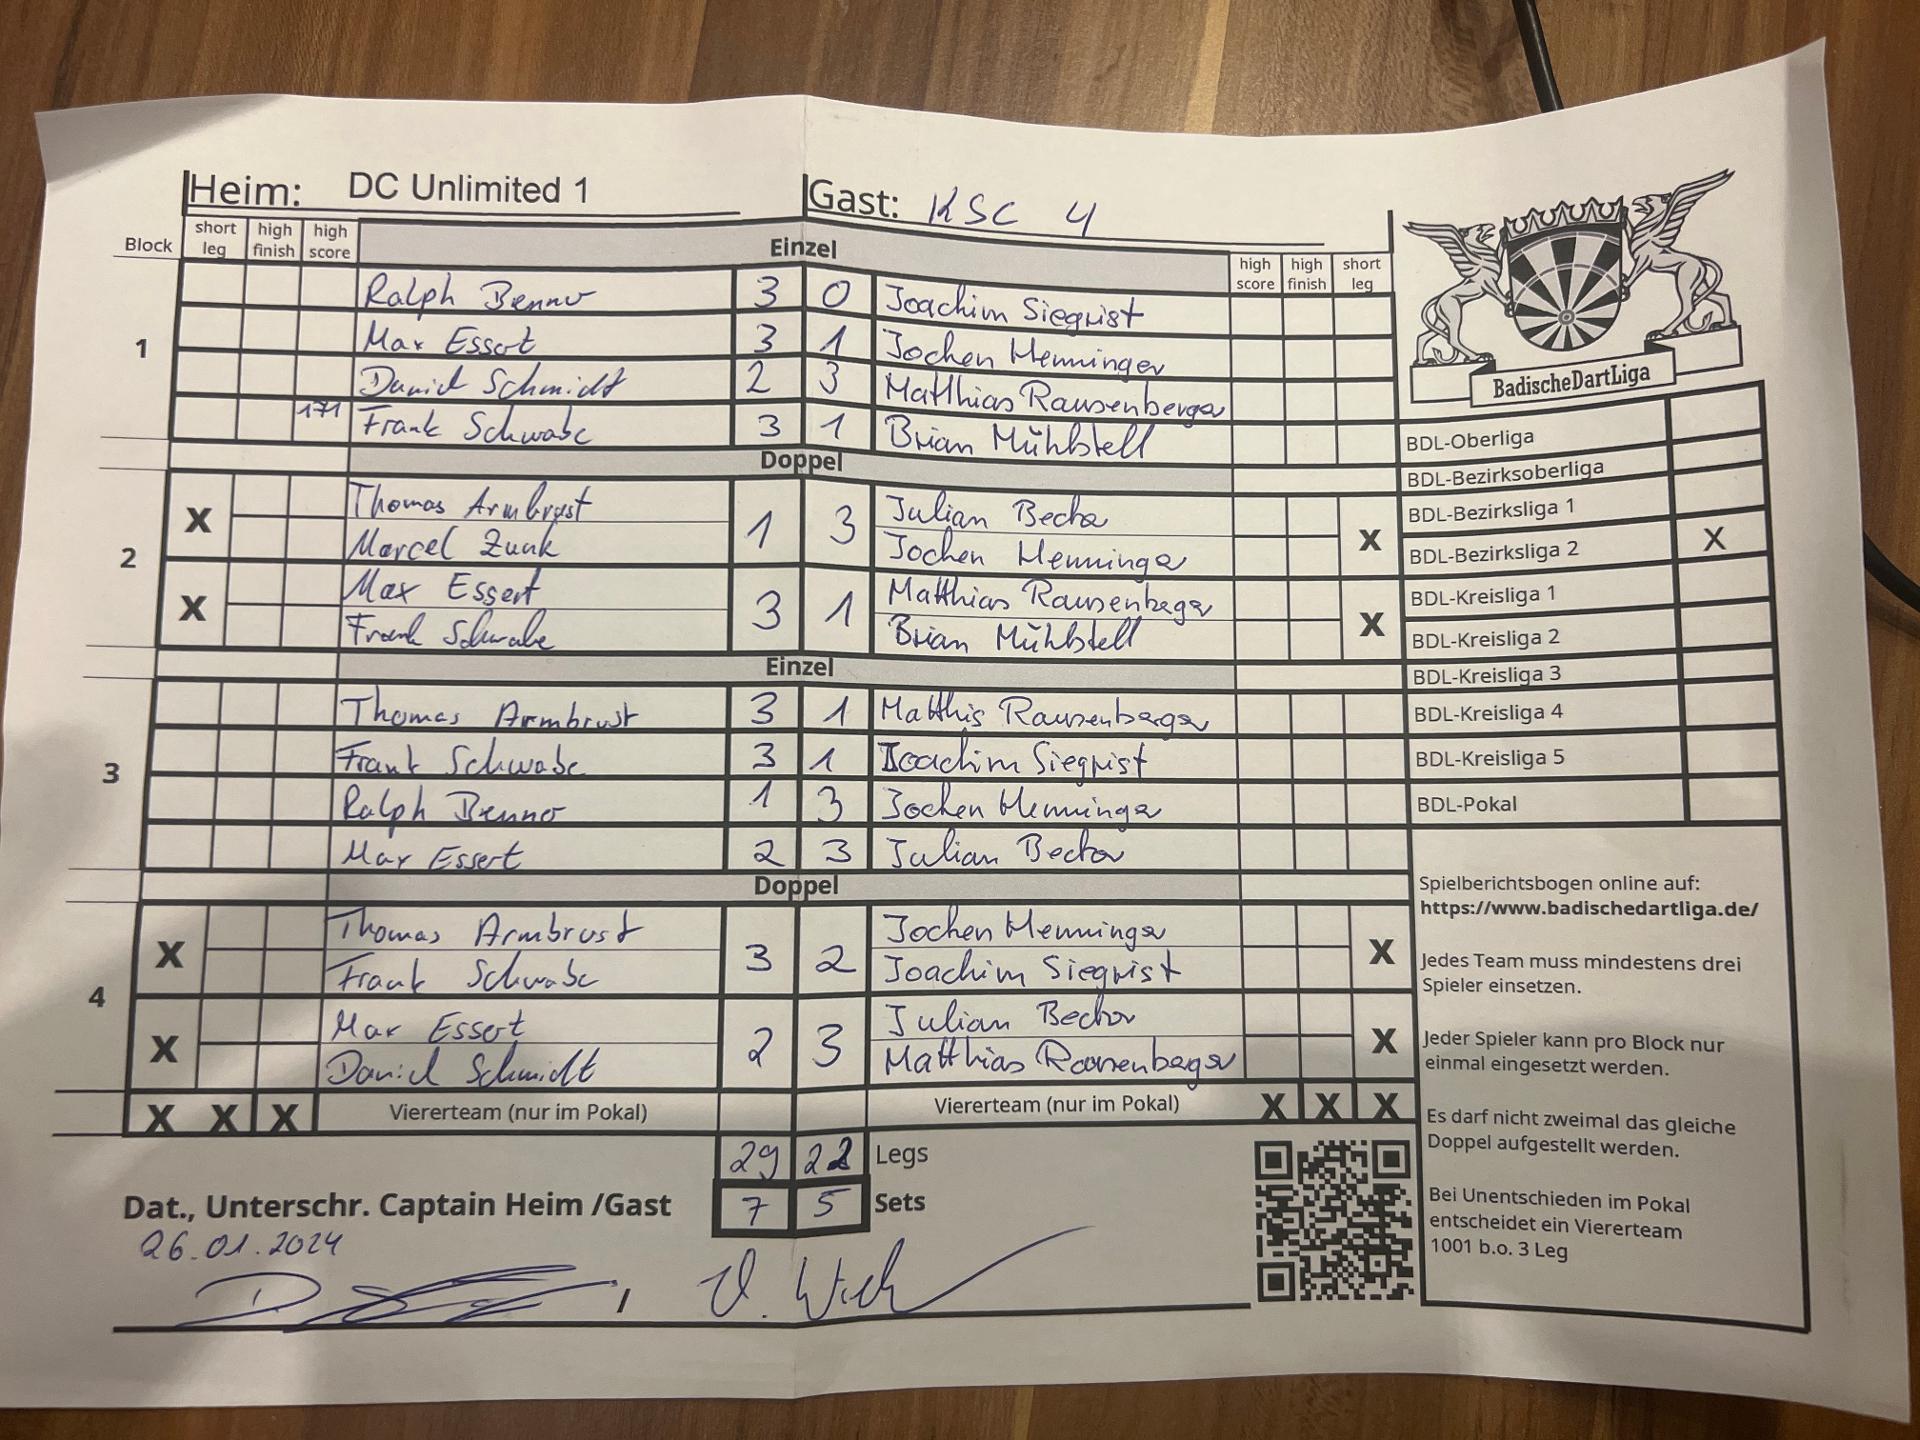 Heim: DC Unlimited 1 Gast: KSC 4
Block short leg high finish high score Einzel high score high finish short leg
1
Ralph Benno 3 0 Joachim Siegrist
Max Essert 3 1 Jochen Henninger
Daniel Schmidt 2 3 Matthias Rausenberger
171 Frank Schwabe 3 1 Brian Mühlstell
Doppel
2
X Thomas Armbrust 1 3 Julian Becker X
Marcel Zunk Jochen Henninger
X Max Essert 3 1 Matthias Rausenberger X
Frank Schwabe Brian Mühlstell
Einzel
3
Thomas Armbrust 3 1 Matthis Rausenberger
Frank Schwabe 3 1 Joachim Siegrist
Ralph Benno 1 3 Jochen Henninger
Max Essert 2 3 Julian Becker
Doppel
4
X Thomas Armbrust 3 2 Jochen Henninger X
Frank Schwabe Joachim Siegrist
X Max Essert 2 3 Julian Becker X
Daniel Schmidt Matthias Rausenberger
X X X Viererteam (nur im Pokal) Viererteam (nur im Pokal) X X X
29 22 Legs
7 5 Sets
Dat., Unterschr. Captain Heim /Gast
26.01.2024
/
BadischeDartLiga
BDL-Oberliga
BDL-Bezirksoberliga
BDL-Bezirksliga 1
BDL-Bezirksliga 2 X
BDL-Kreisliga 1
BDL-Kreisliga 2
BDL-Kreisliga 3
BDL-Kreisliga 4
BDL-Kreisliga 5
BDL-Pokal
Spielberichtsbogen online auf:
https://www.badischedartliga.de/
Jedes Team muss mindestens drei
Spieler einsetzen.
Jeder Spieler kann pro Block nur
einmal eingesetzt werden.
Es darf nicht zweimal das gleiche
Doppel aufgestellt werden.
Bei Unentschieden im Pokal
entscheidet ein Viererteam
1001 b.o. 3 Leg